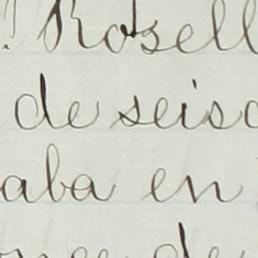 Rosell
de seisc
aba en